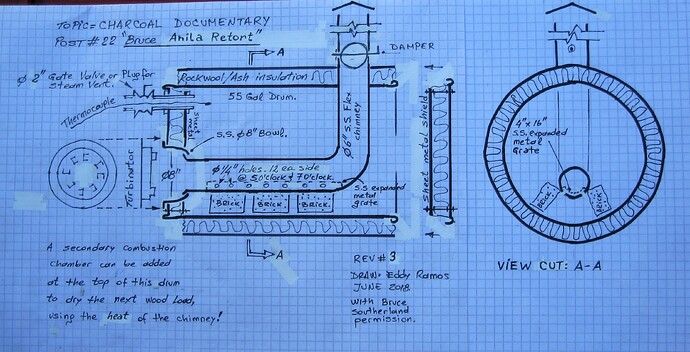 TOPIC = CHARCOAL DOCUMENTARY
POST # 22 "Bruce Ahila Retort"
A
DAMPER
Ø 2" Gate Valve or Plug for
Steam Vent.
Rockwool/Ash insulation
55 Gal Drum.
Thermocouple
sheet
metal
S.S. Ø8" Bowl.
Ø6" S.S. Flex
chimney
sheet metal shield
Turbinator
Ø8"
Ø1/4" holes. 12 ea side
@ 5 O'clock & 7 O'clock.
S.S expanded
metal
grate
BRICK
BRICK
BRICK
A
4"x16"
S.S. expanded
metal
Grate
BRICK
BRICK
VIEW CUT: A-A
A secondary combustion
chamber can be added
at the top of this drum
to dry the next wood load,
using the heat of the chimney!
REV # 3
DRAW: Eddy Ramos
JUNE 2018
With Bruce
Southerland
permission.